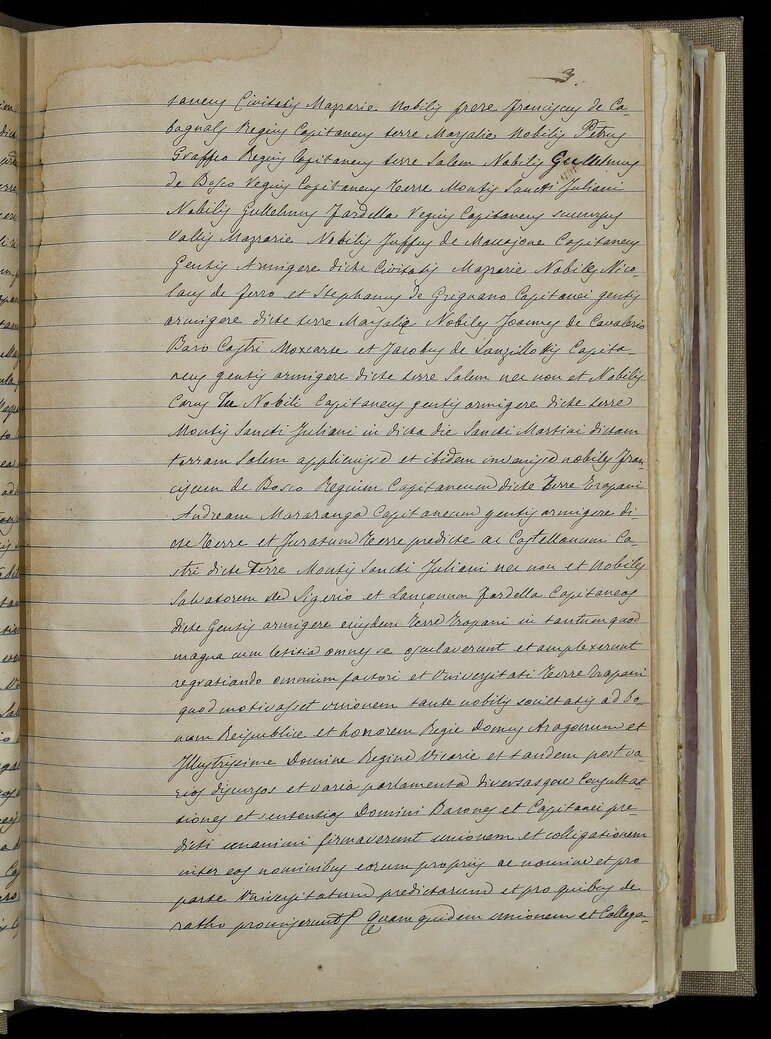 3.
taneus Civitatis Mazarie Nobilis frere Franciscus de Ca-
bagnalis Regius Capitaneus terre Marsalie Nobilis Petrus
Graffeo Regius Capitaneus terre Salem Nobilis Gullelmus
de Bosco Regius Capitaneus Terre Montis Sancti Juliani
Nobilis Gullelmus Fardella Regius Capitaneus
Vallis Mazarie Nobilis de Capitaneus
Gentis Armigere dicte Civitatis Mazarie Nobiles Nico-
laus de Ferro et Stephanus de Grignano Capitanei gentis
armigere dicte terre Marsalie Nobiles Joannes de Cavalerio
Baro Castri et Jacobus de Capita-
neus gentis armigere dicte terre Salem nec non et Nobilis
Nobili Capitaneus gentis armigere dicte terre
Montis Sancti Juliani in dicta die Sancti Martini dictam
terram Salem applicuisse et ibidem invenisse nobiles Fran-
ciscum de Bosco Regium Capitaneum dicte Terre Trapani
Andream Mararanga Capitaneum gentis armigere di-
cte Terre et Juratum Terre predicte ac Castellanum Ca-
stri dicte Terre Montis Sancti Juliani nec non et Nobiles
Salvatorem de Sigerio et Lanconum Fardella Capitaneos
dicte Gentis armigere eiusdem Terre Trapani in tantum quod
magna cum letitia omnes se osculaverunt et amplexerunt
regratiando omnium factori et Universitati Terre Trapani
quod motivasset unionem tante nobilis societatis ad bo-
num Reipublice et honorem Regie Domus Aragonum et
Illustrissime Domine Regine Vicarie et tandem post va-
rios discursos et varia parlamenta diversasque Consulta-
tiones et sententias Domini Barones et Capitanei pre-
dicti unanimi firmaverunt unionem et colligationem
inter eos nominibus eorum propriis ac nomine et pro
parte Universitatum predictarum et pro quibus de
ratho promiserunt Quam quidem unionem et Collega-